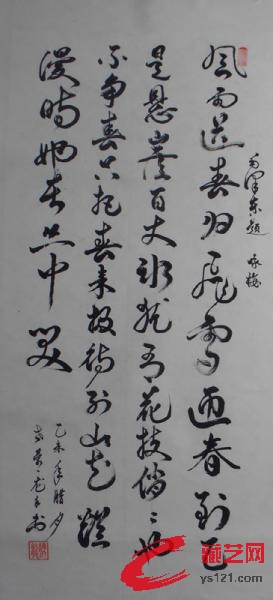 毛泽东题 咏梅
风雨送春归飛雪迎春到已
是悬崖百丈冰犹有花枝俏〻也
不争春只把春来报待到山花爛
漫时她在丛中笑
乙未年腊夕
书
藏艺网
ys121.com